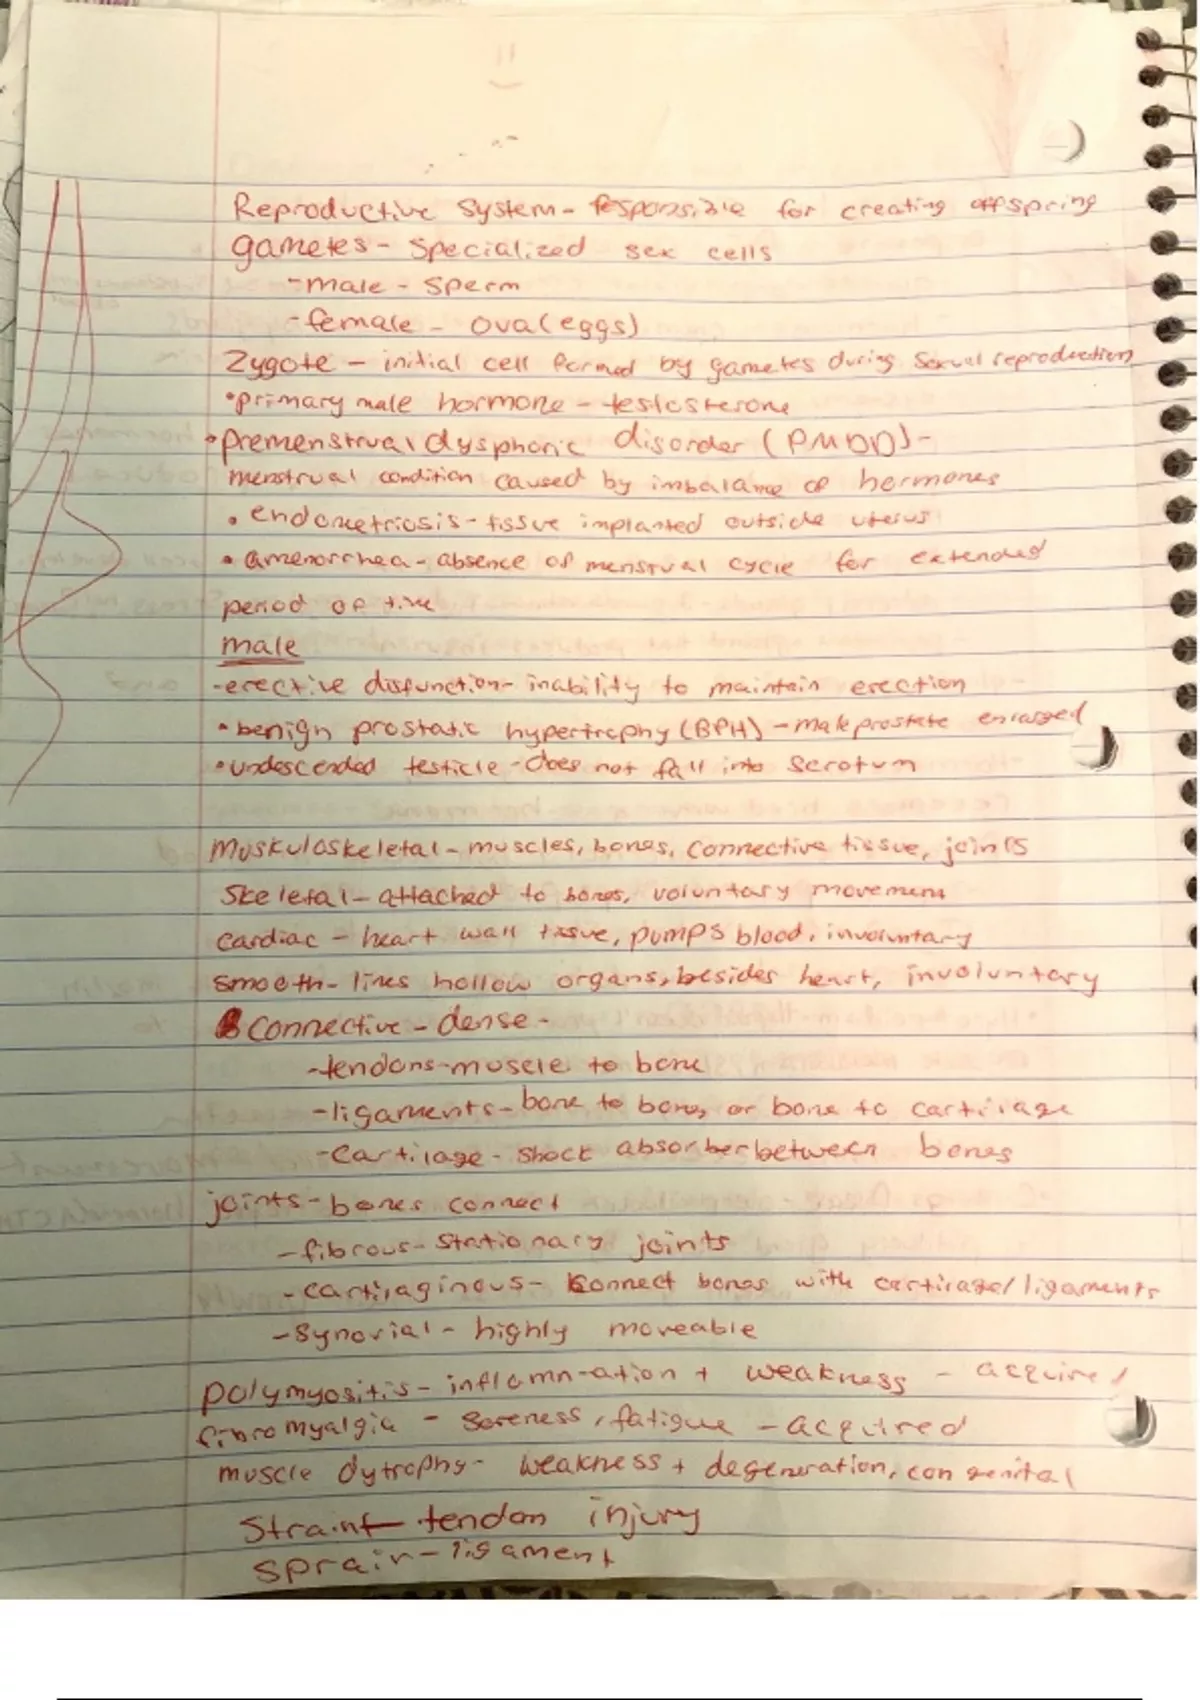 Reproductive system - responsible for creating offspring
gametes - specialized sex cells
- male - sperm
- female - ova (eggs)
Zygote - initial cell formed by gametes during sexual reproduction
• primary male hormone - testosterone
• premenstrual dysphoric disorder (PMDD) -
menstrual condition caused by imbalance of hormones
• endometriosis - tissue implanted outside uterus
• amenorrhea - absence of menstrual cycle for extended
period of time
male
- erective disfunction - inability to maintain erection
• benign prostatic hypertrophy (BPH) - male prostate enlarged
• undescended testicle - does not fall into scrotum
Muskuloskeletal - muscles, bones, connective tissue, joints
Skeletal - attached to bones, voluntary movement
cardiac - heart wall tissue, pumps blood, involuntary
smooth - lines hollow organs, besides heart, involuntary
Connective - dense -
- tendons - muscle to bone
- ligaments - bone to bone, or bone to cartilage
- cartilage - shock absorber between bones
joints - bones connect
- fibrous - stationary joints
- cartilaginous - connect bones with cartilage/ligaments
- synovial - highly moveable
polymyositis - inflammation + weakness - acquired
fibromyalgia - soreness, fatigue - acquired
muscle dytrophy - weakness + degeneration, congenital
Strain - tendon injury
sprain - ligament